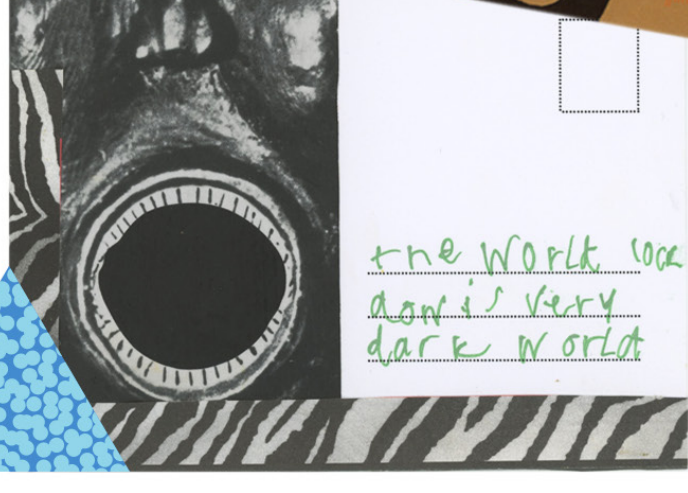 the world lock
dow is very
dark world